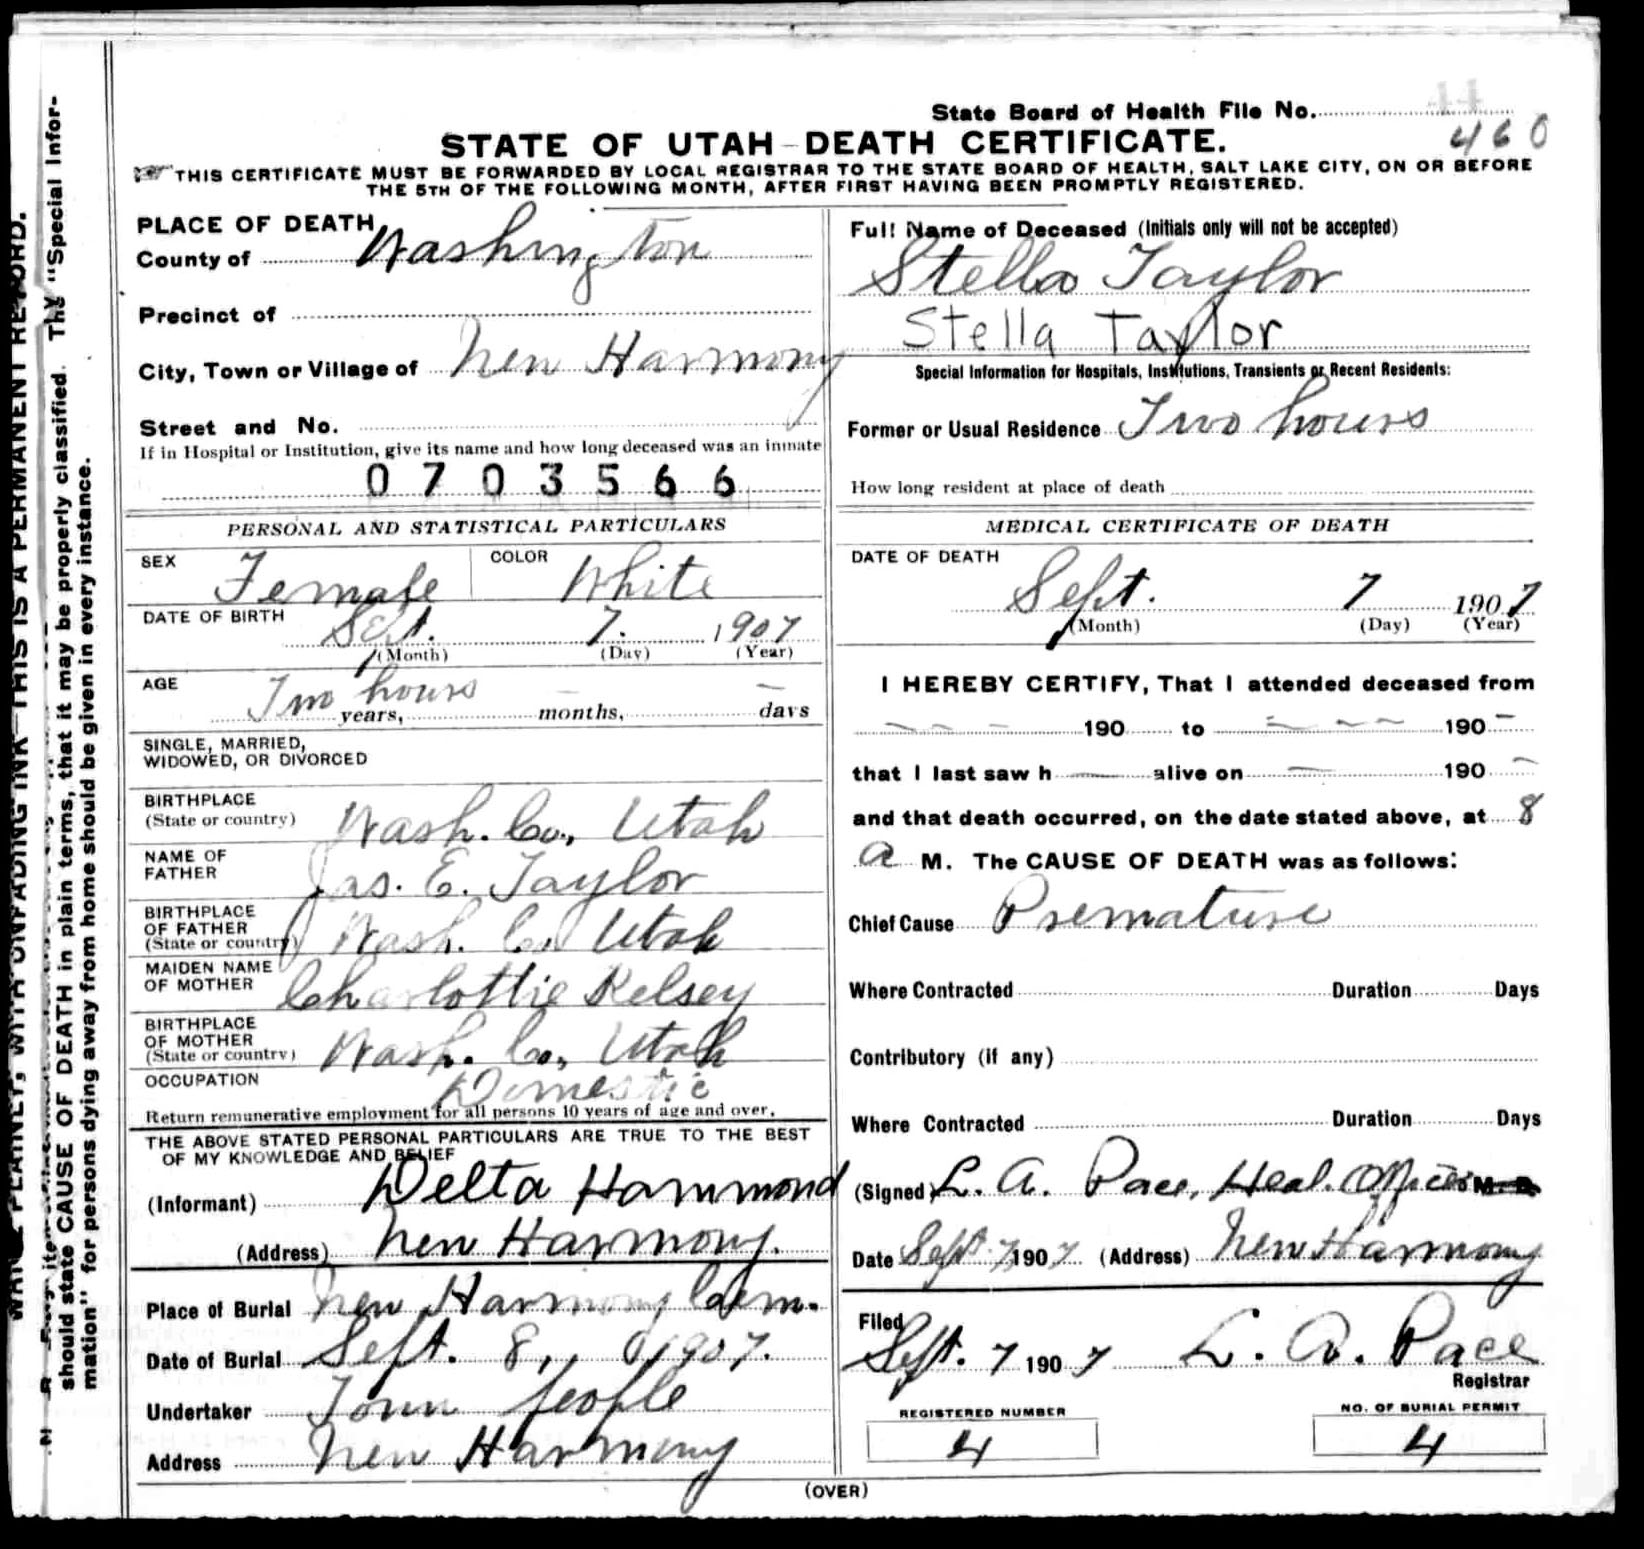 State Board of Health File No. 44
460
STATE OF UTAH—DEATH CERTIFICATE.
THIS CERTIFICATE MUST BE FORWARDED BY LOCAL REGISTRAR TO THE STATE BOARD OF HEALTH, SALT LAKE CITY, ON OR BEFORE
THE 5TH OF THE FOLLOWING MONTH, AFTER FIRST HAVING BEEN PROMPTLY REGISTERED.
PLACE OF DEATH
County of Washington
Precinct of
City, Town or Village of New Harmony
Street and No.
If in Hospital or Institution, give its name and how long deceased was an inmate
0703566
PERSONAL AND STATISTICAL PARTICULARS
SEX Female COLOR White
DATE OF BIRTH Sept. 7. 1907
(Month) (Day) (Year)
AGE Two hours years, — months, — days
SINGLE, MARRIED,
WIDOWED, OR DIVORCED
BIRTHPLACE
(State or country) Wash. Co., Utah
NAME OF
FATHER Jas. E. Taylor
BIRTHPLACE
OF FATHER
(State or country) Wash. Co., Utah
MAIDEN NAME
OF MOTHER Charlottie Kelsey
BIRTHPLACE
OF MOTHER
(State or country) Wash. Co., Utah
OCCUPATION Domestic
Return remunerative employment for all persons 10 years of age and over.
THE ABOVE STATED PERSONAL PARTICULARS ARE TRUE TO THE BEST
OF MY KNOWLEDGE AND BELIEF
(Informant) Delta Hammond
(Address) New Harmony.
Place of Burial New Harmony Cem.
Date of Burial Sept. 8, 1907.
Undertaker Town people
Address New Harmony
Full Name of Deceased (Initials only will not be accepted)
Stella Taylor
Stella Taylor
Special Information for Hospitals, Institutions, Transients or Recent Residents:
Former or Usual Residence Two hours
How long resident at place of death
MEDICAL CERTIFICATE OF DEATH
DATE OF DEATH
Sept. 7 1907
(Month) (Day) (Year)
I HEREBY CERTIFY, That I attended deceased from
— — — 190 to — — — 190 —
that I last saw h — alive on — 190 —
and that death occurred, on the date stated above, at 8
a M. The CAUSE OF DEATH was as follows:
Chief Cause Premature
Where Contracted Duration Days
Contributory (if any)
Where Contracted Duration Days
(Signed) L. A. Pace, Heal. Officer M. D.
Date Sept. 7, 1907 (Address) New Harmony
Filed
Sept. 7 1907 L. A. Pace
Registrar
REGISTERED NUMBER
4
NO. OF BURIAL PERMIT
4
(OVER)
PLAINLY, WITH UNFADING INK—THIS IS A PERMANENT RECORD.
should state CAUSE OF DEATH in plain terms, that it may be properly classified. The "Special Infor-
mation" for persons dying away from home should be given in every instance.